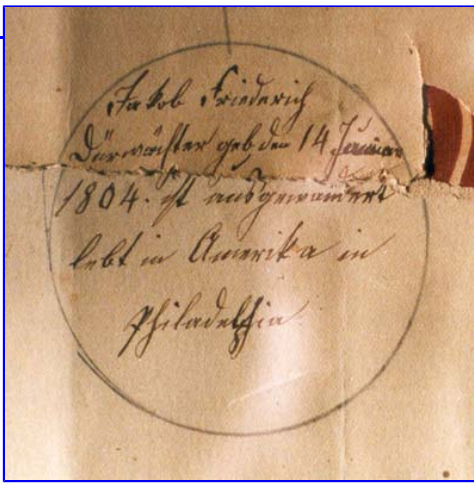 Jakob Friederich
Dürwächter geb den 14 Januar
1804. ist ausgewandert
lebt in Amerika in
Philadelphia